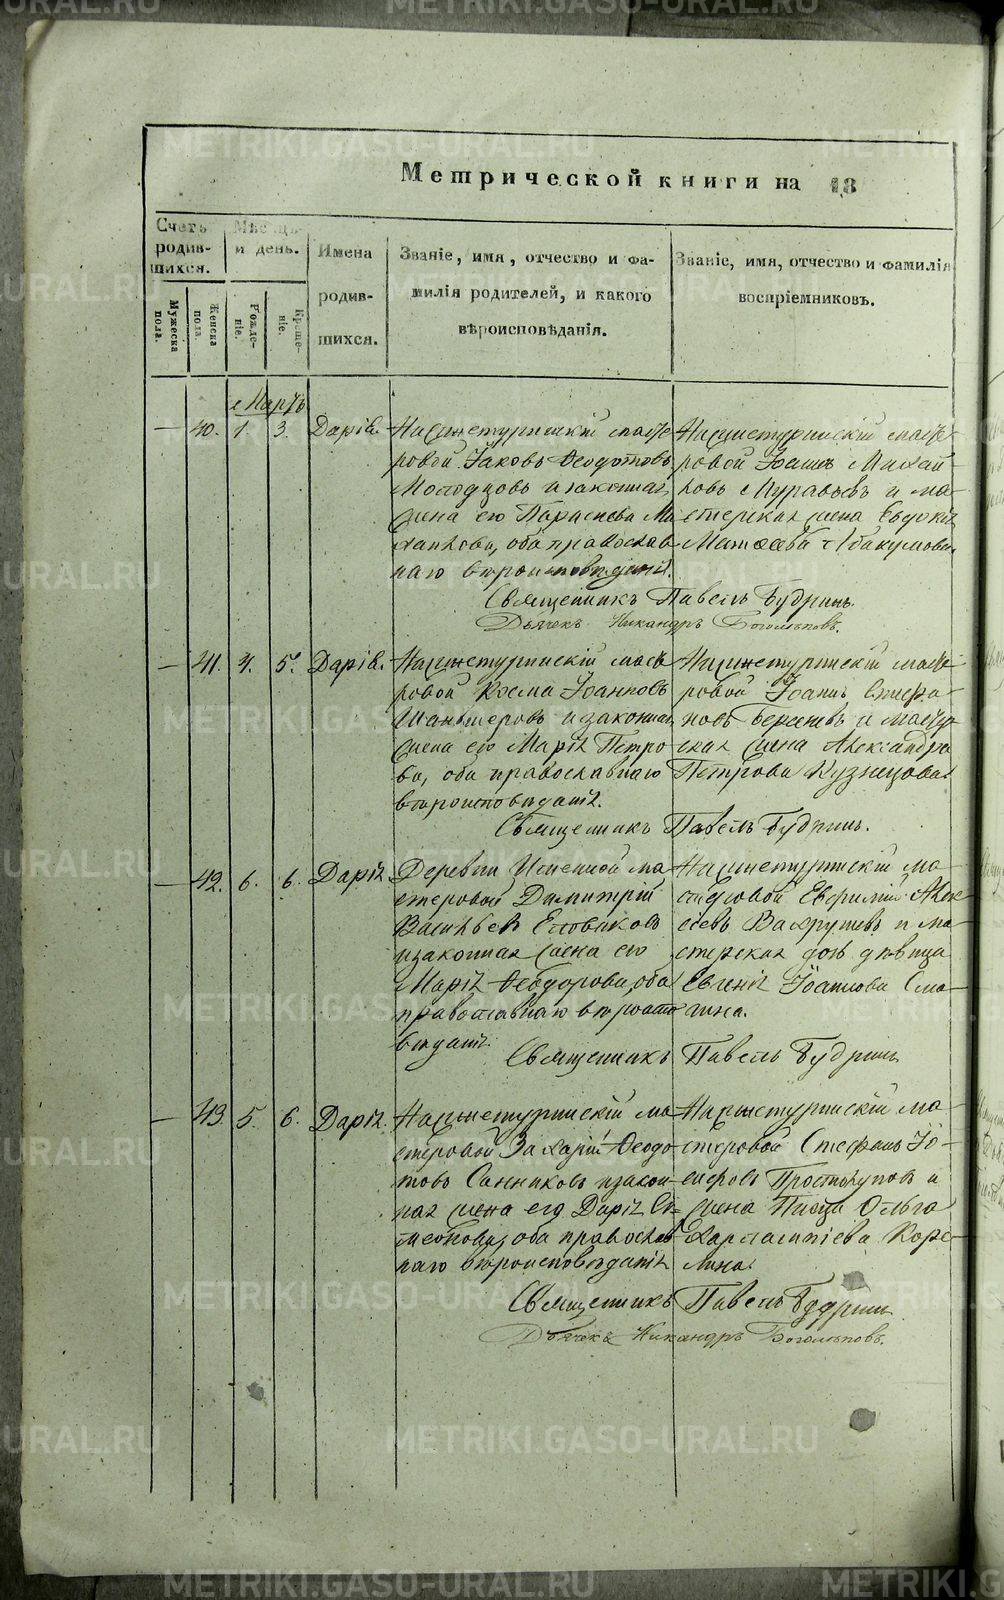 METRIKI.GASO-URAL.RU
Метрической книги на 18
Счетъ родившихся.
Мѣсяцъ и день.
Имена родившихся.
Званіе, имя, отчество и фамилія родителей, и какого вѣроисповѣданія.
Званіе, имя, отчество и фамилія воспріемниковъ.
Мужеска пола.
Женска пола.
Рожденіе.
Крещеніе.
Мартъ
— 40. 1. 3. Дарія.
Нижнетуринскій масте
ровой Іаковъ Феодотовъ
Молодцовъ и законная
жена его Параскева
оба православ
наго вѣроисповѣданія.
Нижнетуринскій масте-
ровой Іоаннъ Михай-
ловъ Муравьевъ и ма-
стерская жена Евдокія
Матѳеева Абакумова
Священникъ Павелъ Будринъ.
Дьячекъ Никандръ Боголѣповъ.
— 41. 4. 5. Дарія.
Нижнетуринскій масте
ровой Косма Іоанновъ
и законная
жена его Марія Петро
ва, оба православнаго
вѣроисповѣданія.
Нижнетуринскій масте-
ровой Іоаннъ Епифа-
новъ и масте
ская жена Александра
Петрова Кузнецова
Священникъ Павелъ Будринъ.
— 42. 6. 6. Дарія.
Деревни Именной ма
стеровой Димитрій
Васильевъ
и законная жена его
Марія Феодорова, оба
православнаго вѣроиспо
вѣданія.
Нижнетуринскій ма-
стеровой Евфимій Алек
сѣевъ Вахрушевъ и ма-
стерская дочь дѣвица
Евгенія Іоаннова Сма-
гина.
Священникъ Павелъ Будринъ
— 43. 5. 6. Дарія.
Нижнетуринскій ма-
стеровой Захарій Феодо-
товъ Санниковъ и закон-
ная жена его Дарія Си-
меонова, оба православ
наго вѣроисповѣданія
Нижнетуринскій ма-
стеровой Стефанъ Іо-
сифовъ Простокуповъ и
жена Писца Ольга
Харлампіева Коре-
лина.
Священникъ Павелъ Будринъ
Дьячекъ Никандръ Боголѣповъ.